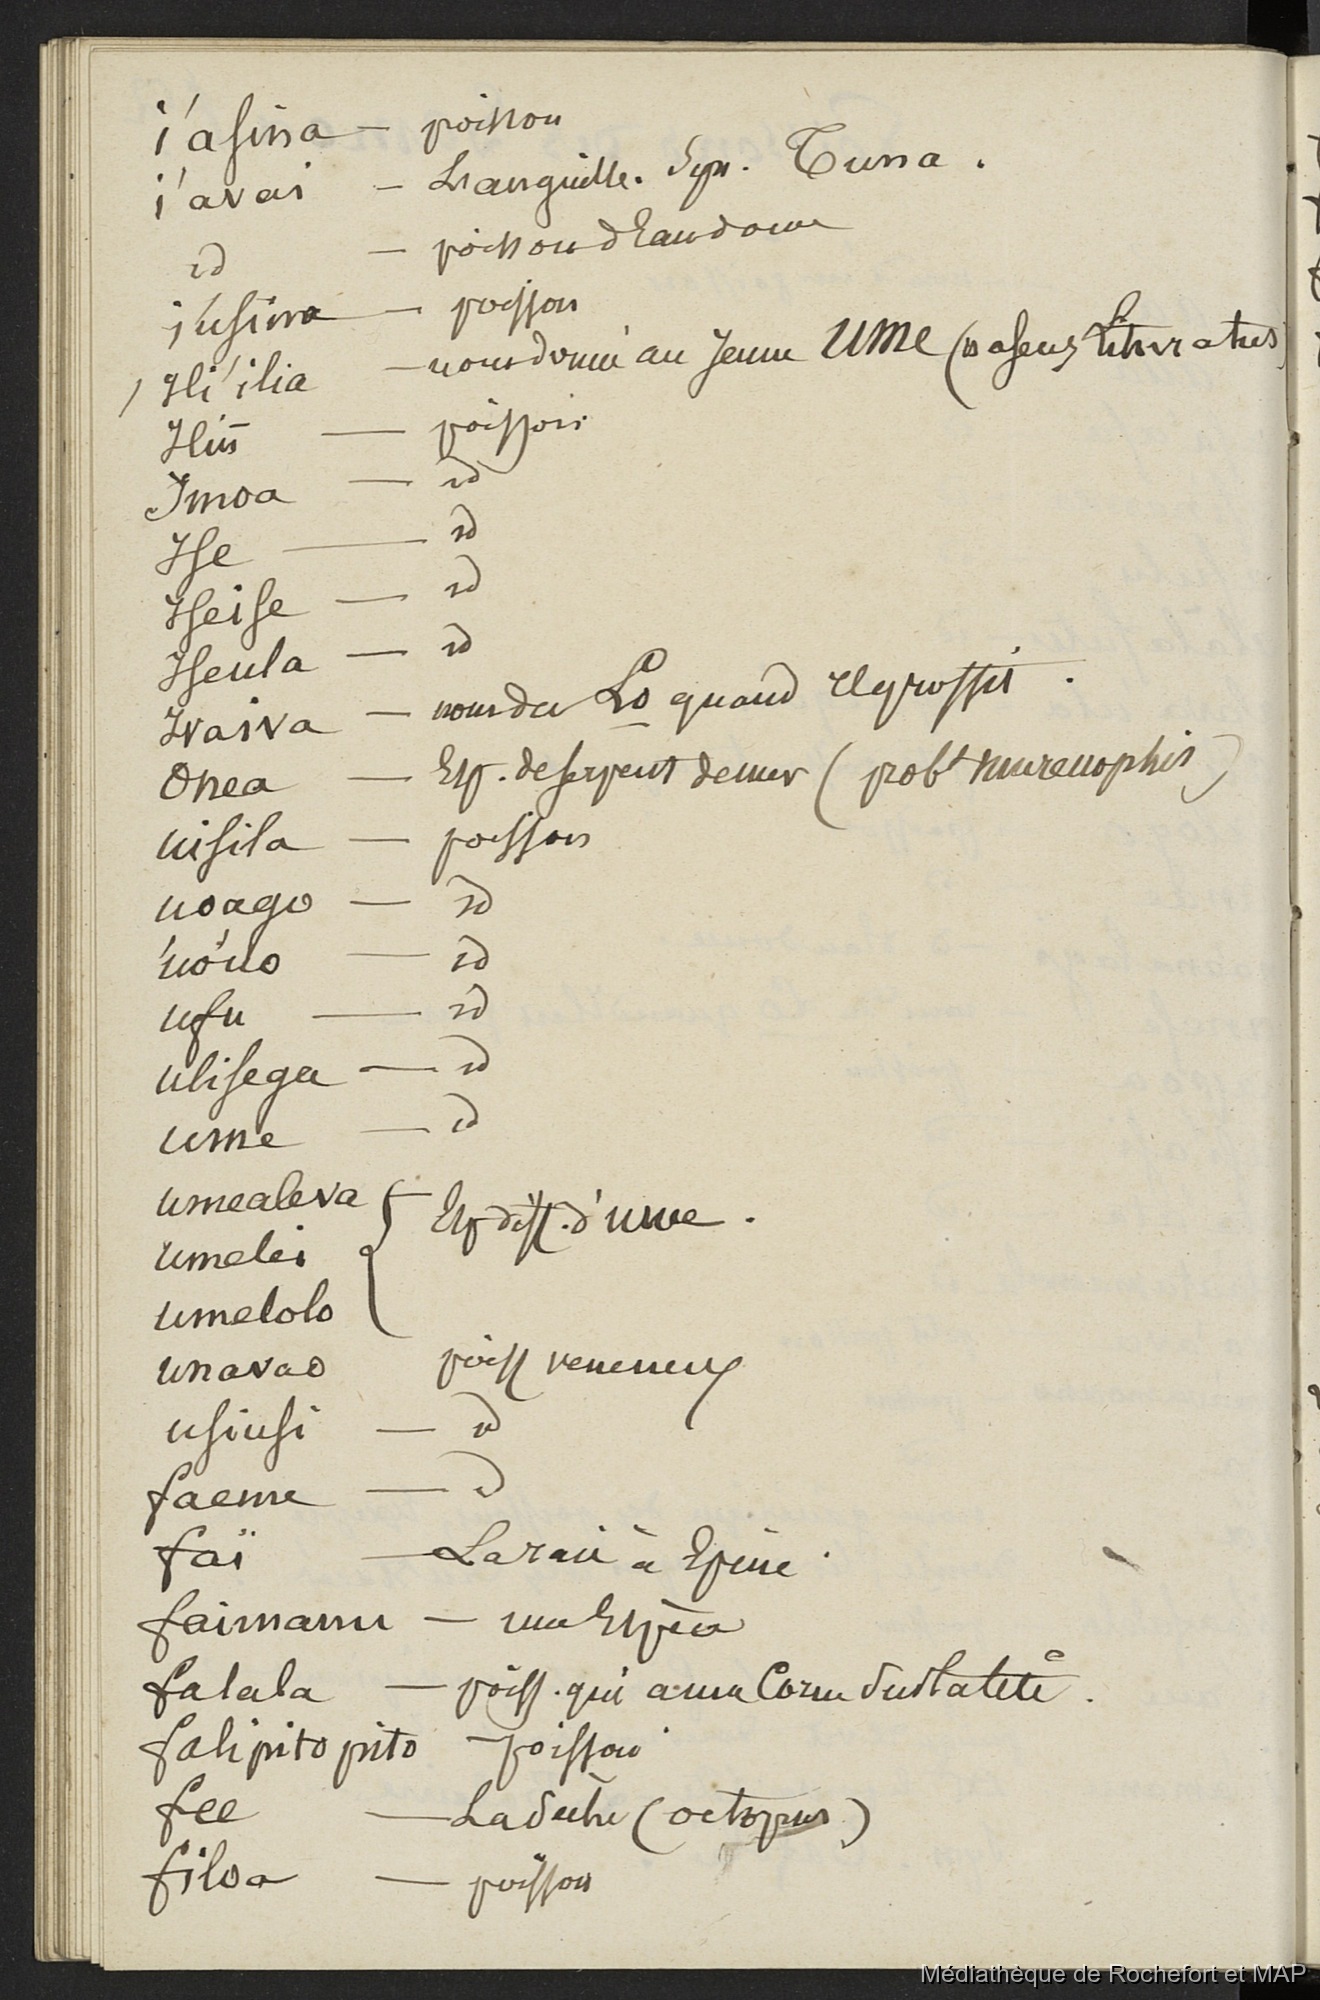 i'asina — poisson
i'avai — L'anguille. Syn. Tuna.
id — poisson d'Eau douce
i'usina — poisson
Ili'ilia — nom donné au jeune UME (naseus Lituratus
Iliu — poisson
Imoa — id
Ise — id
Iseise — id
Iseula — id
Ivaiva — nom du Lo quand il grossit.
Onea — Esp. de serpent de mer (probt murenophis)
uisila — poisson
uoago — id
'uo'uo — id
ufu — id
ulisega — id
ume — id
umealeva { — Esp diff. d'ume.
umelei
umelolo
unavao poiss veneneux
usiusi — id
faeme — id
faï — La raie à Epine.
faimanu — une Espèce
falala — poiss. qui a une Corne sur la tête.
falipitopito — poisson
fee — La Seiche (octopus)
filoa — poisson
Médiathèque de Rochefort et MAP